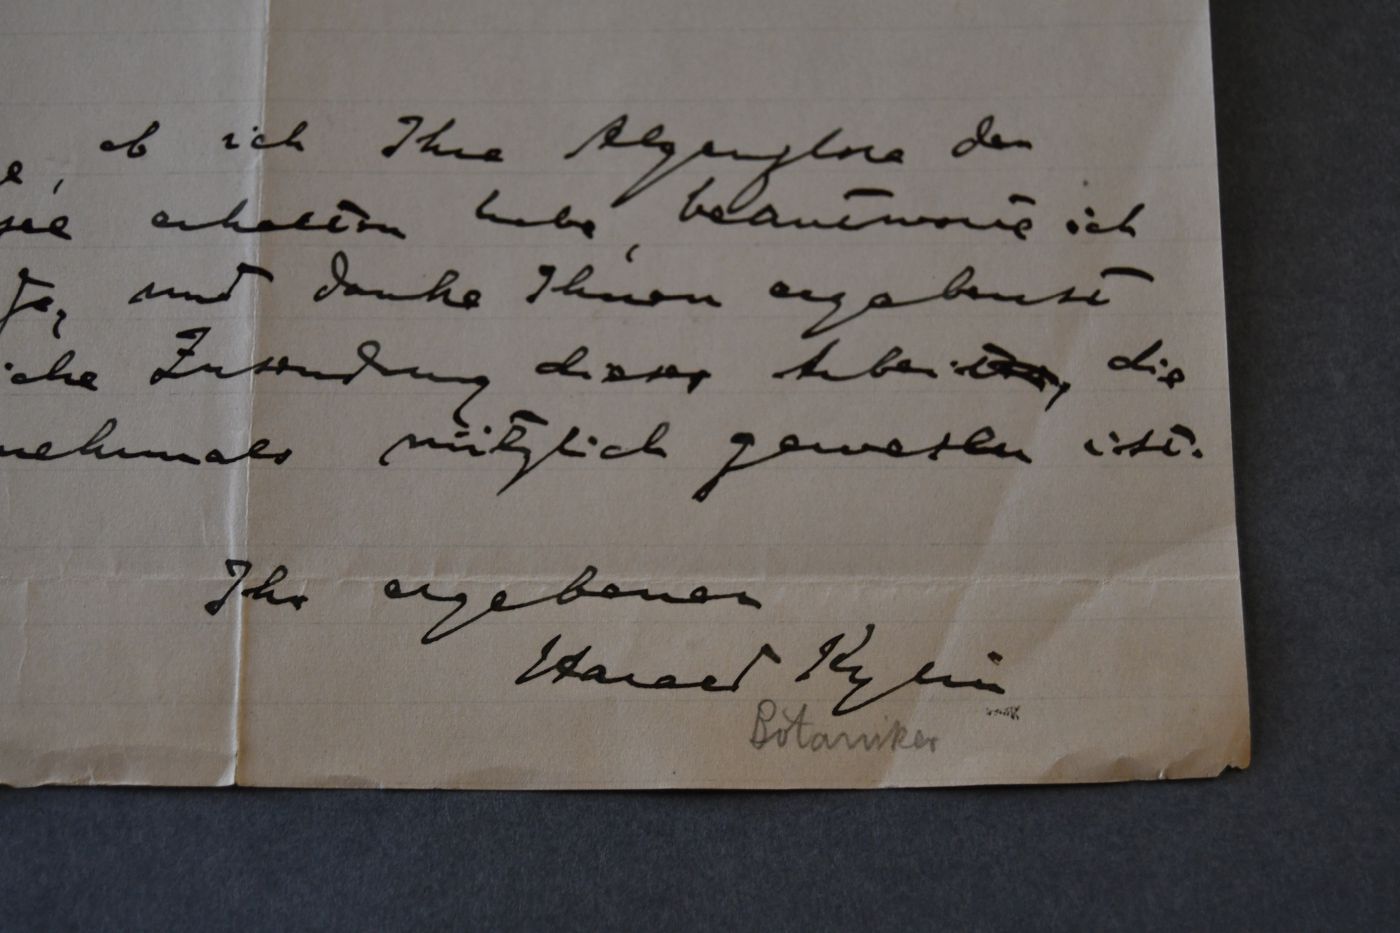 e, ob ich Ihre Algenflora der
see erhalten habe, beantworte ich
Ja, und danke Ihnen ergebenst
iche Zusendung dieser Arbeit, die
mehrmals nützlich gewesen ist.
Ihr ergebener
Harald Kylin
Botaniker